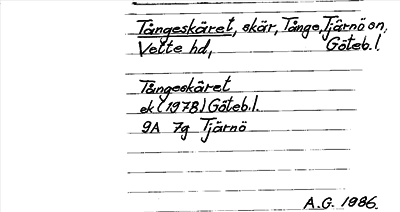 Tångeskäret, skär, Tånge, Tjärnö sn,
Vette hd, Göteb.l.
Tångeskäret
ek (1978) Göteb.l.
9A 7g Tjärnö
A.G. 1986.